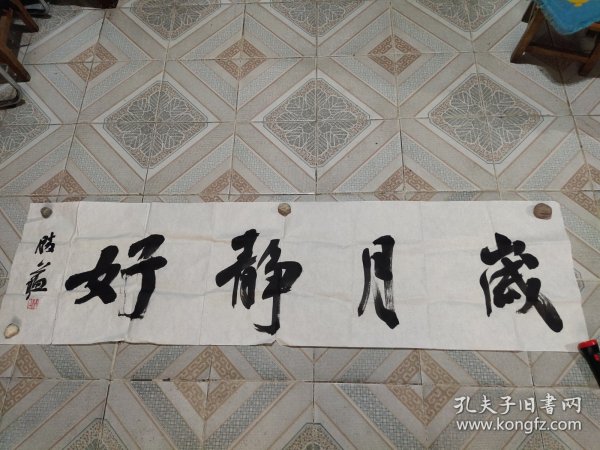 歲月靜好
孔夫子旧書网
www.kongfz.com